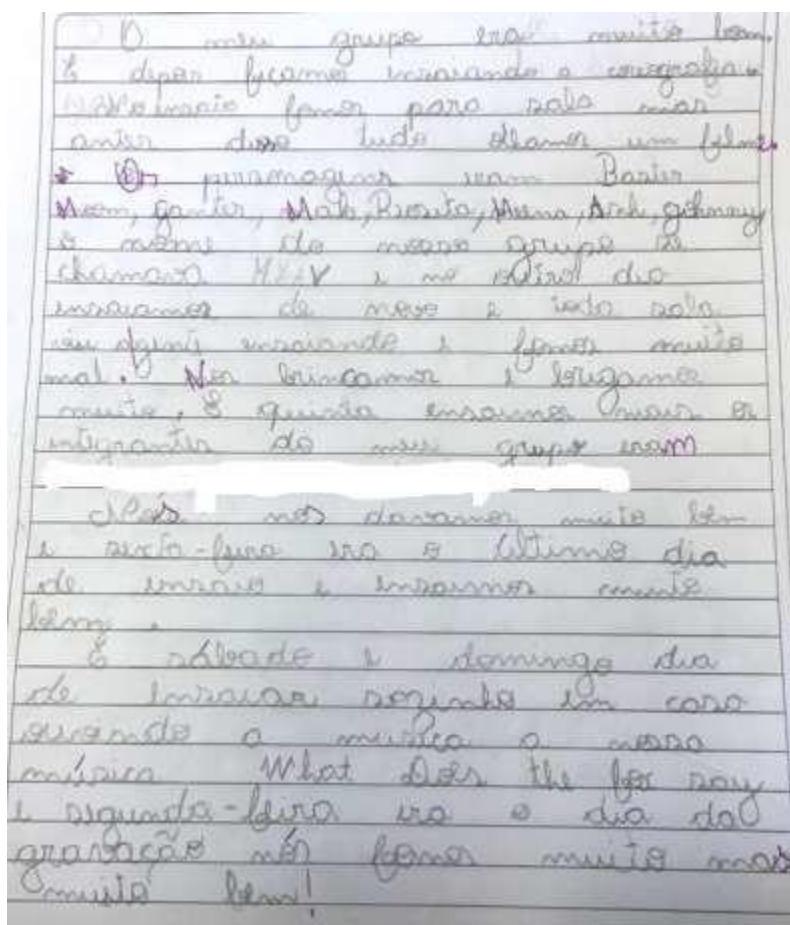 O meu grupo era muito bom.
E depois ficamos ensaiando a coreografia.
ensaio fomos para sala mas
antes disso tudo olhamos um filme.
* Os personagens eram Baster
Moom, Gunter, Mak, Rosita, Meena, Ash, Johnny
o nome do nosso grupo se
chamava e no outro dia
ensaiamos de novo e toda sala
viu agente ensaiando e fomos muito
mal. Nos brincamos e brigamos
muito, E quinta ensaimos mais os
integrantes do meu grupo eram
Mais nos davamos muito bem
e sexta-feira era o último dia
de ensaio e ensaimos muito
bem.
E sábado e domingo dia
de ensaiar sozinho em casa
ouvindo a musica a nossa
música What Does the fox say
e segunda-feira era o dia da
gravação nós fomos muito mas
muito bem!